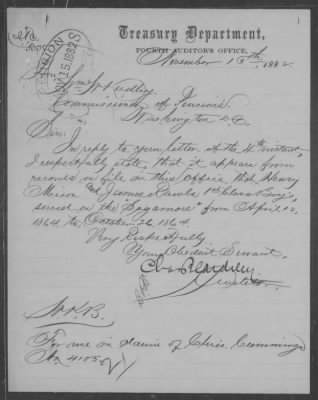 Treasury Department,
FOURTH AUDITOR'S OFFICE,
November 15th, 1882.
NOV 15 1882
Wm W Dudley
Commissioner of Pensions
Washington D.C.
Sir:
In reply to your letter of the 4th instant
I respectfully state, that it appears from
records on file in this Office, that Henry
and James 1st Class Boy's
served on the "Sagamore" from April 12,
1864 to October 26, 1864.
Very Respectfully
Your Obedient Servant,
Chas Beardsley
W.K.B.
For use in claim of Chris. Cummings
No 4105